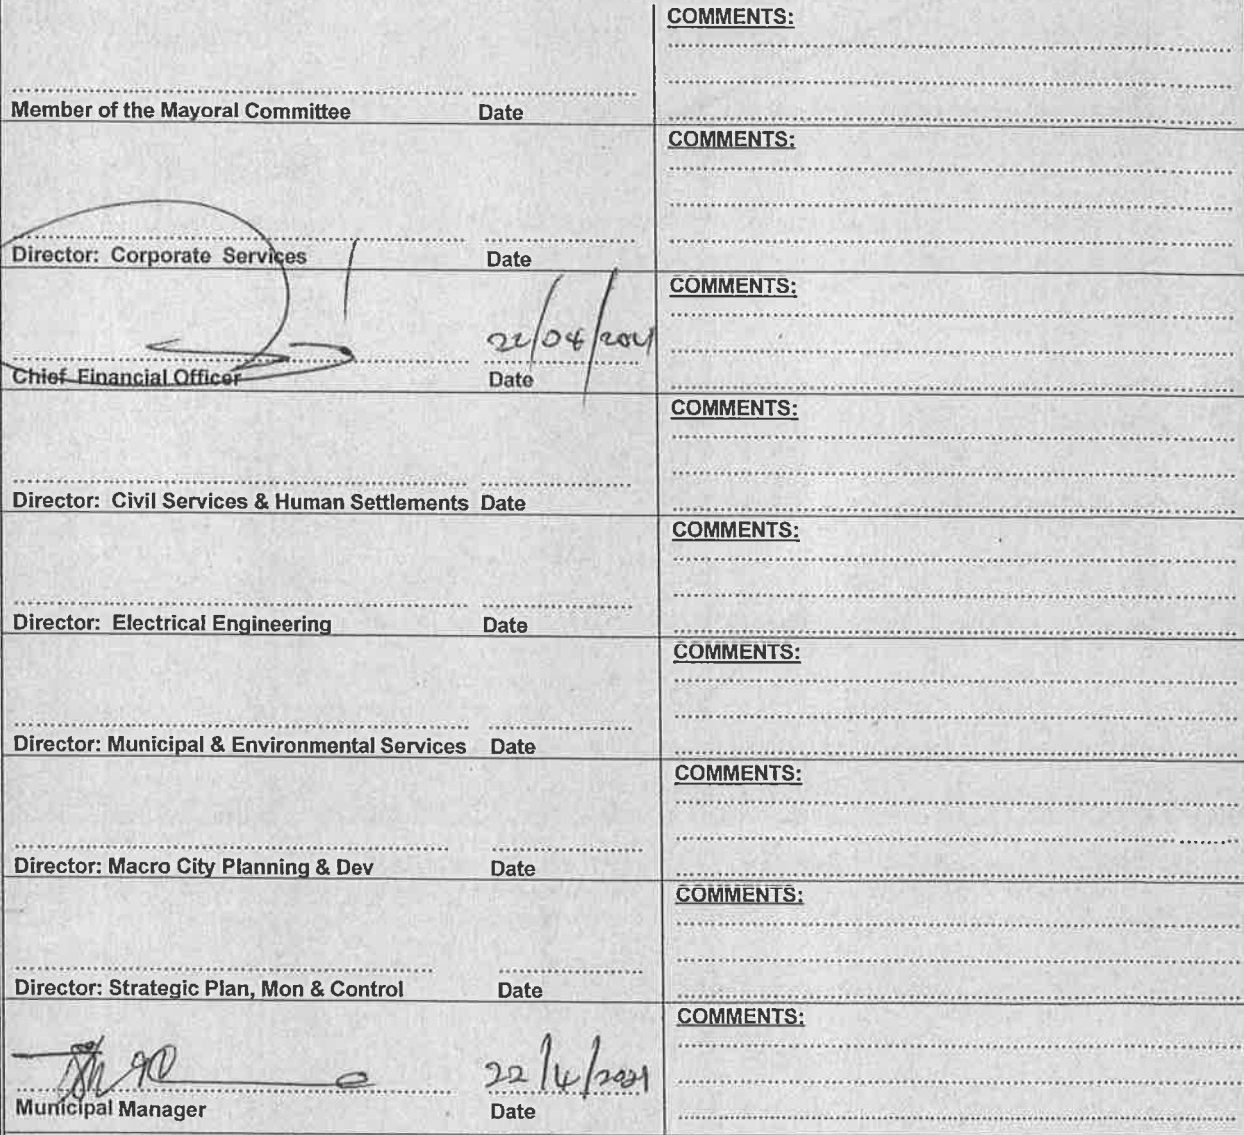 COMMENTS:
Member of the Mayoral Committee Date
COMMENTS:
Director: Corporate Services Date
COMMENTS:
22/04/2021
Chief Financial Officer Date
COMMENTS:
Director: Civil Services & Human Settlements Date
COMMENTS:
Director: Electrical Engineering Date
COMMENTS:
Director: Municipal & Environmental Services Date
COMMENTS:
Director: Macro City Planning & Dev Date
COMMENTS:
Director: Strategic Plan, Mon & Control Date
COMMENTS:
22/4/2021
Municipal Manager Date